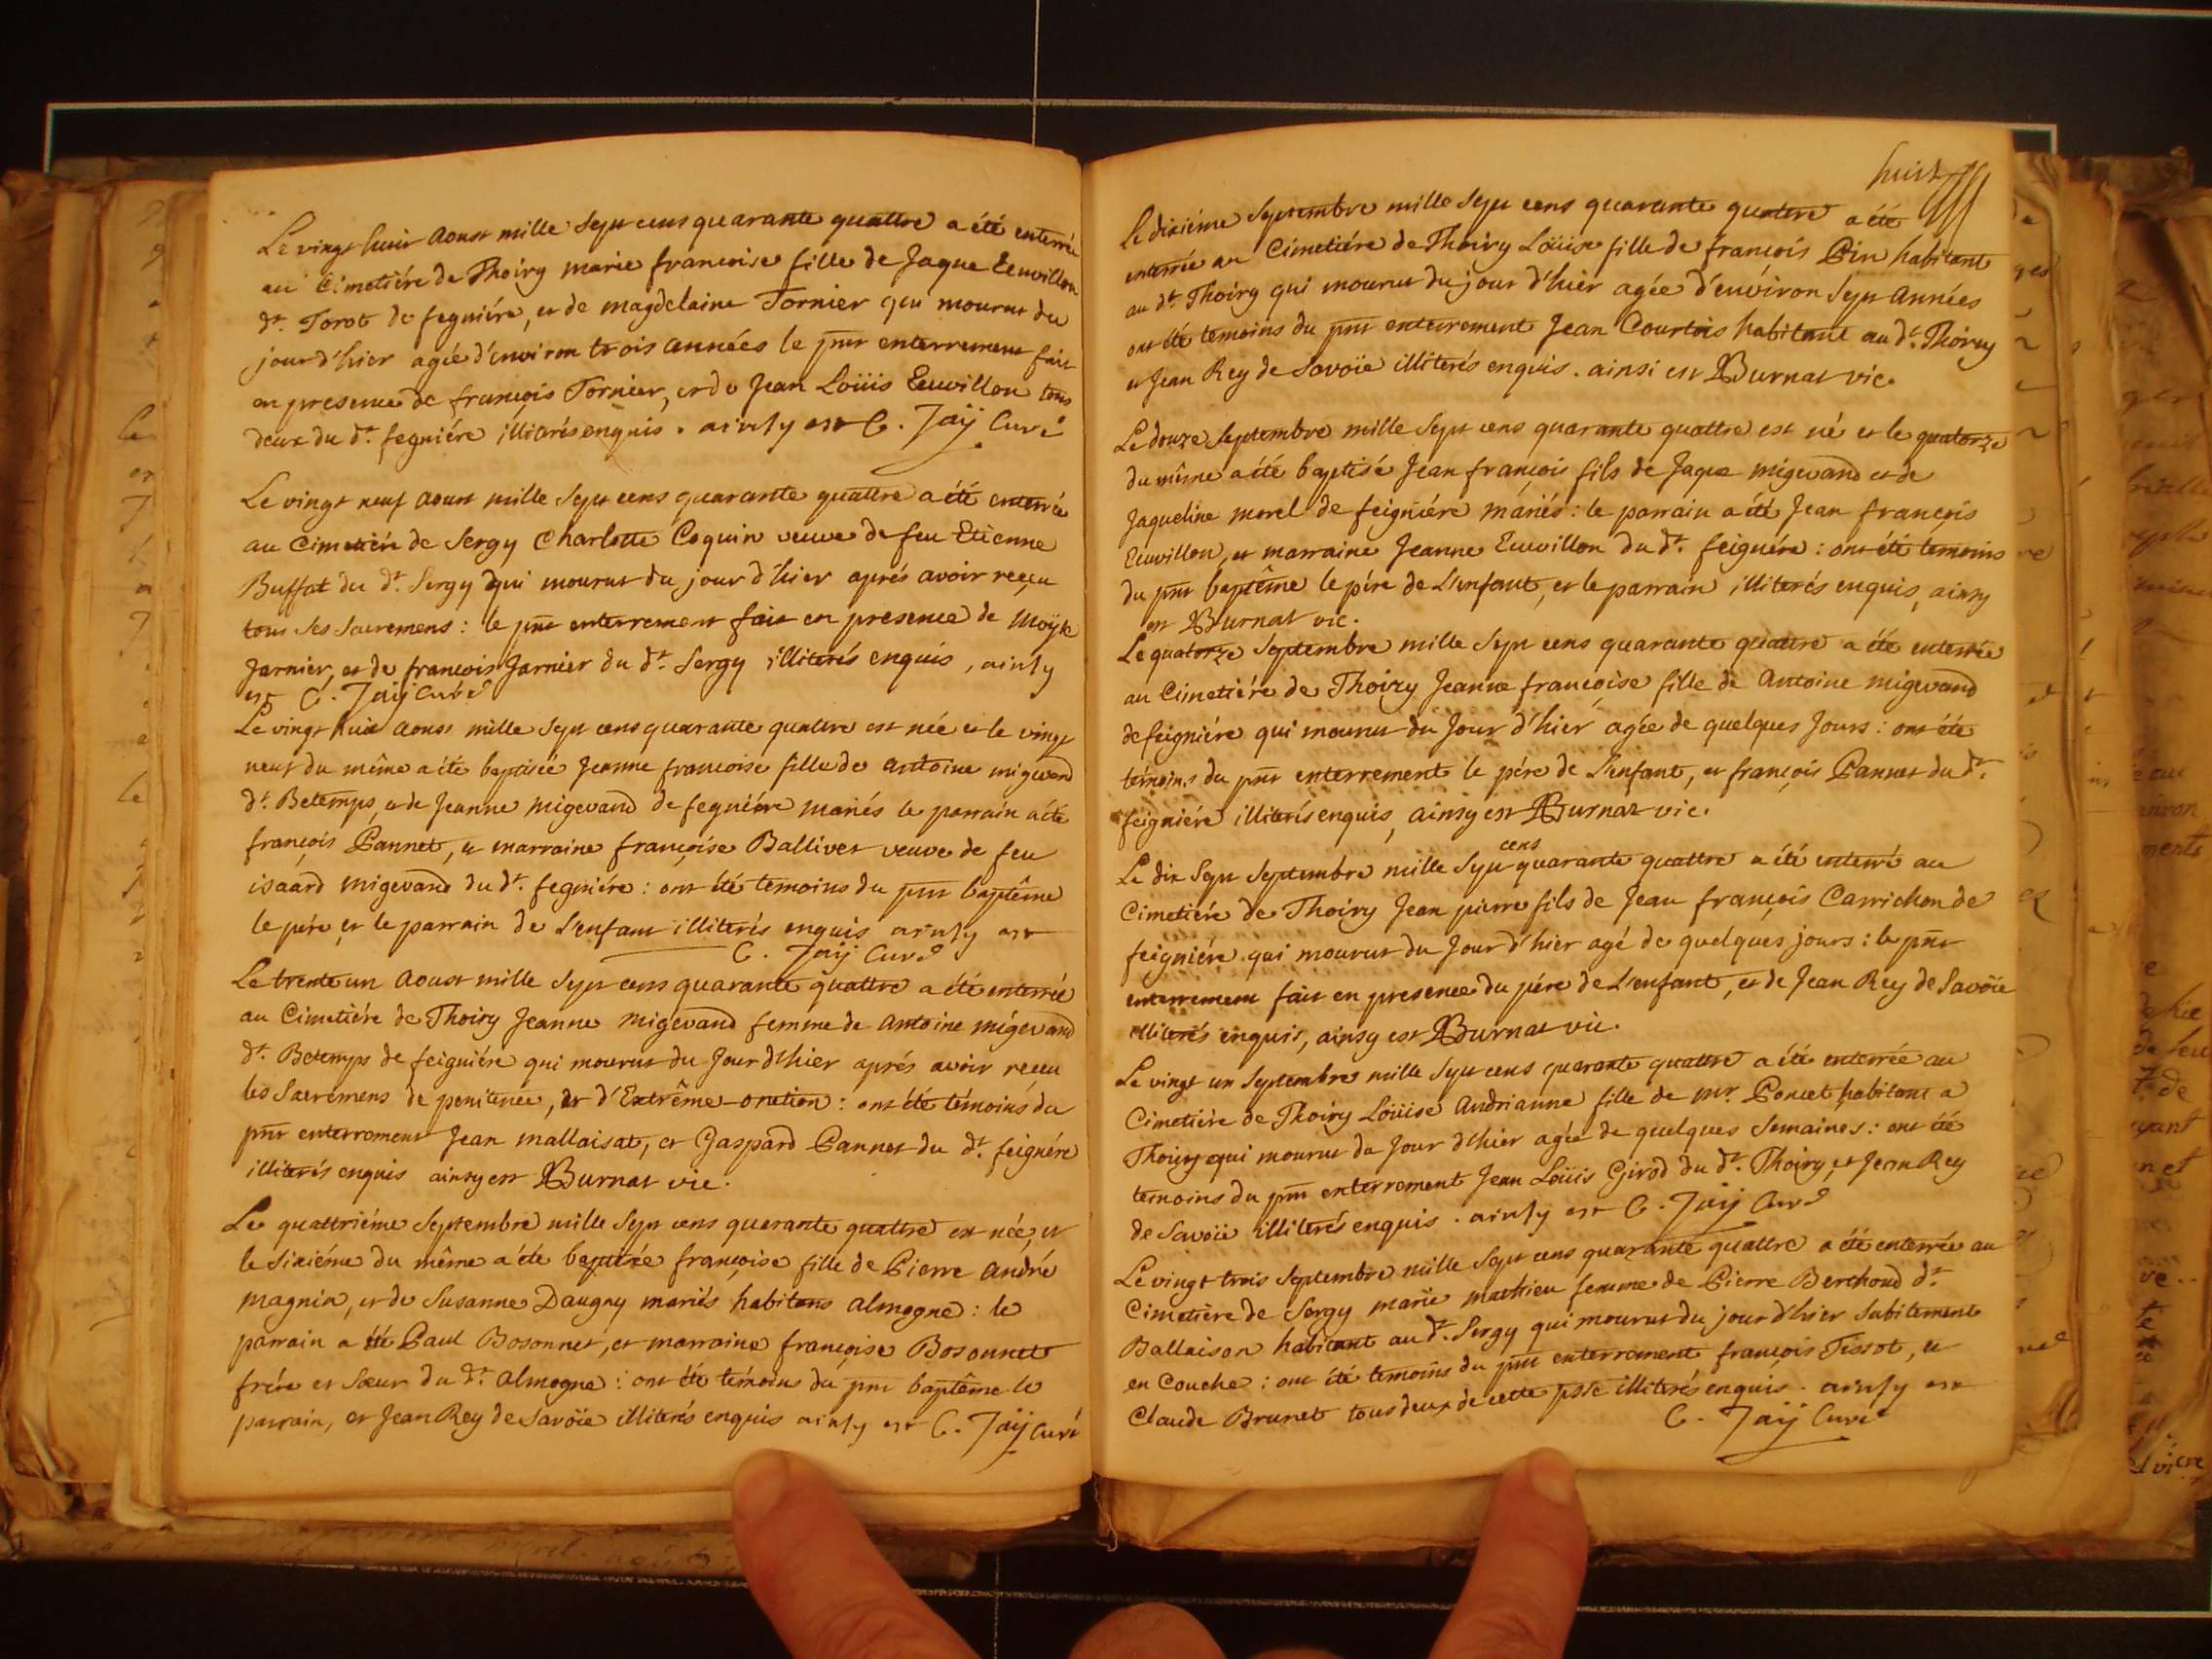 Le vingt huit aoust mille Sept cens quarante quattre a été enterrée
au Cimetiére de Thoiry marie françoise fille de Jaque Eeuvillon
dt. Torot de fegniére, et de magdelaine Tornier qui mourut du
jour d'hier agée d'environ trois années le pnt enterrement fait
en presence de françois Tornier, et de Jean Loüis Eeuvillon tous
deux du dt. fegniére illiterés enquis. ainsy est C. Jaÿ Curé
Le vingt neuf aoust mille Sept cens quarante quattre a été enterrée
au Cimetiére de Sergy Charlotte Coquin veuve de feu Etienne
Buffat du dt. Sergy qui mourut du jour d'hier aprés avoir reçeu
tous ses Sacremens : le pnt enterrement fait en presence de Moÿse
Jarnier, et de françois Jarnier du dt. Sergy illiterés enquis, ainsy
est C. Jaÿ Curé
Le vingt huit aoust mille Sept cens quarante quattre est née et le vingt
neuf du même a été baptisée Jeanne françoise fille de antoine migevand
dt. Betemps, et de Jeanne migevand de fegniére mariés le parrain a été
françois Pannet, et marraine françoise Ballivet veuve de feu
isaard migevand du dt. fegniére : ont été temoins du pnt baptême
le pére et le parrain de L'enfant illiterés enquis ainsy est
C. Jaÿ Curé
Le trente un aoust mille Sept cens quarante quattre a été enterrée
au Cimetiére de Thoiry Jeanne migevand femme de antoine migevand
dt. Betemps de feigniére qui mourut du Jour d'hier aprés avoir reçeu
les Sacremens de penitence, et d'Extrême-onction : ont été témoins du
pnt enterrement Jean mallaisat, et Gaspard Pannet du dt. feigniére
illiterés enquis ainsy est Burnat vic.
Le quattriéme Septembre mille Sept cens quarante quattre est née, et
le Sixiéme du même a été baptisée françoise fille de Pierre andré
magnin, et de Susanne Daugny mariés habitans almogne : le
parrain a été Paul Bosonnet, et marraine françoise Bosonnet
frére et Sœur du dt. almogne : ont été témoins du pnt baptême le
parrain, et Jean Rey de Savoïe illiterés enquis ainsy est C. Jaÿ Curé
huit
Le dixiéme Septembre mille Sept cens quarante quattre a été
enterrée au Cimetiére de Thoiry Loüise fille de françois Pin habitant
au dt. Thoiry qui mourut du jour d'hier agée d'environ Sept années
ont été temoins du pnt enterrement Jean Courtois habitant au dt. Thoiry
et Jean Rey de Savoïe illiterés enquis. ainsi est Burnat vic.
Le douze Septembre mille Sept cens quarante quattre est né et le quatorze
du même a été baptisé Jean françois fils de Jaque migevand et de
Jaqueline morel de feigniére mariés : le parrain a été Jean françois
Eeuvillon, et marraine Jeanne Eeuvillon du dt. feigniére : ont été temoins
du pnt baptême le pére de L'enfant, et le parrain illiterés enquis, ainsy
est Burnat vic.
Le quatorze Septembre mille Sept cens quarante quattre a été enterrée
au Cimetiére de Thoiry Jeanne françoise fille de antoine migevand
de feigniére qui mourut du Jour d'hier agée de quelques Jours : ont été
temoins du pnt enterrement le pére de L'enfant, et françois Pannet du dt.
feigniére illiterés enquis, ainsy est Burnat vic.
Le dix Sept Septembre mille Sept cens quarante quattre a été enterré au
Cimetiére de Thoiry Jean pierre fils de Jean françois Carrichon de
feigniére qui mourut du Jour d'hier agé de quelques jours : le pnt
enterrement fait en presence du pére de L'enfant, et de Jean Rey de Savoïe
illiterés enquis, ainsy est Burnat vic.
Le vingt un Septembre mille Sept cens quarante quattre a été enterrée au
Cimetiére de Thoiry Loüise andrianne fille de mr. Poncet habitant a
Thoiry qui mourut du Jour d'hier agée de quelques Semaines : ont été
temoins du pnt enterrement Jean Loüis Girod du dt. Thoiry, et Jean Rey
de Savoïe illiterés enquis. ainsy est C. Jaÿ Curé
Le vingt trois Septembre mille Sept cens quarante quattre a été enterrée au
Cimetiére de Sergy marie mathieu femme de Pierre Berthoud dt.
Ballaison habitant au dt. Sergy qui mourut du jour d'hier Subitement
en Couche : ont été temoins du pnt enterrement françois Tissot, et
Claude Brunet tous deux de cette psse illiterés enquis. ainsy est
C. Jaÿ Curé